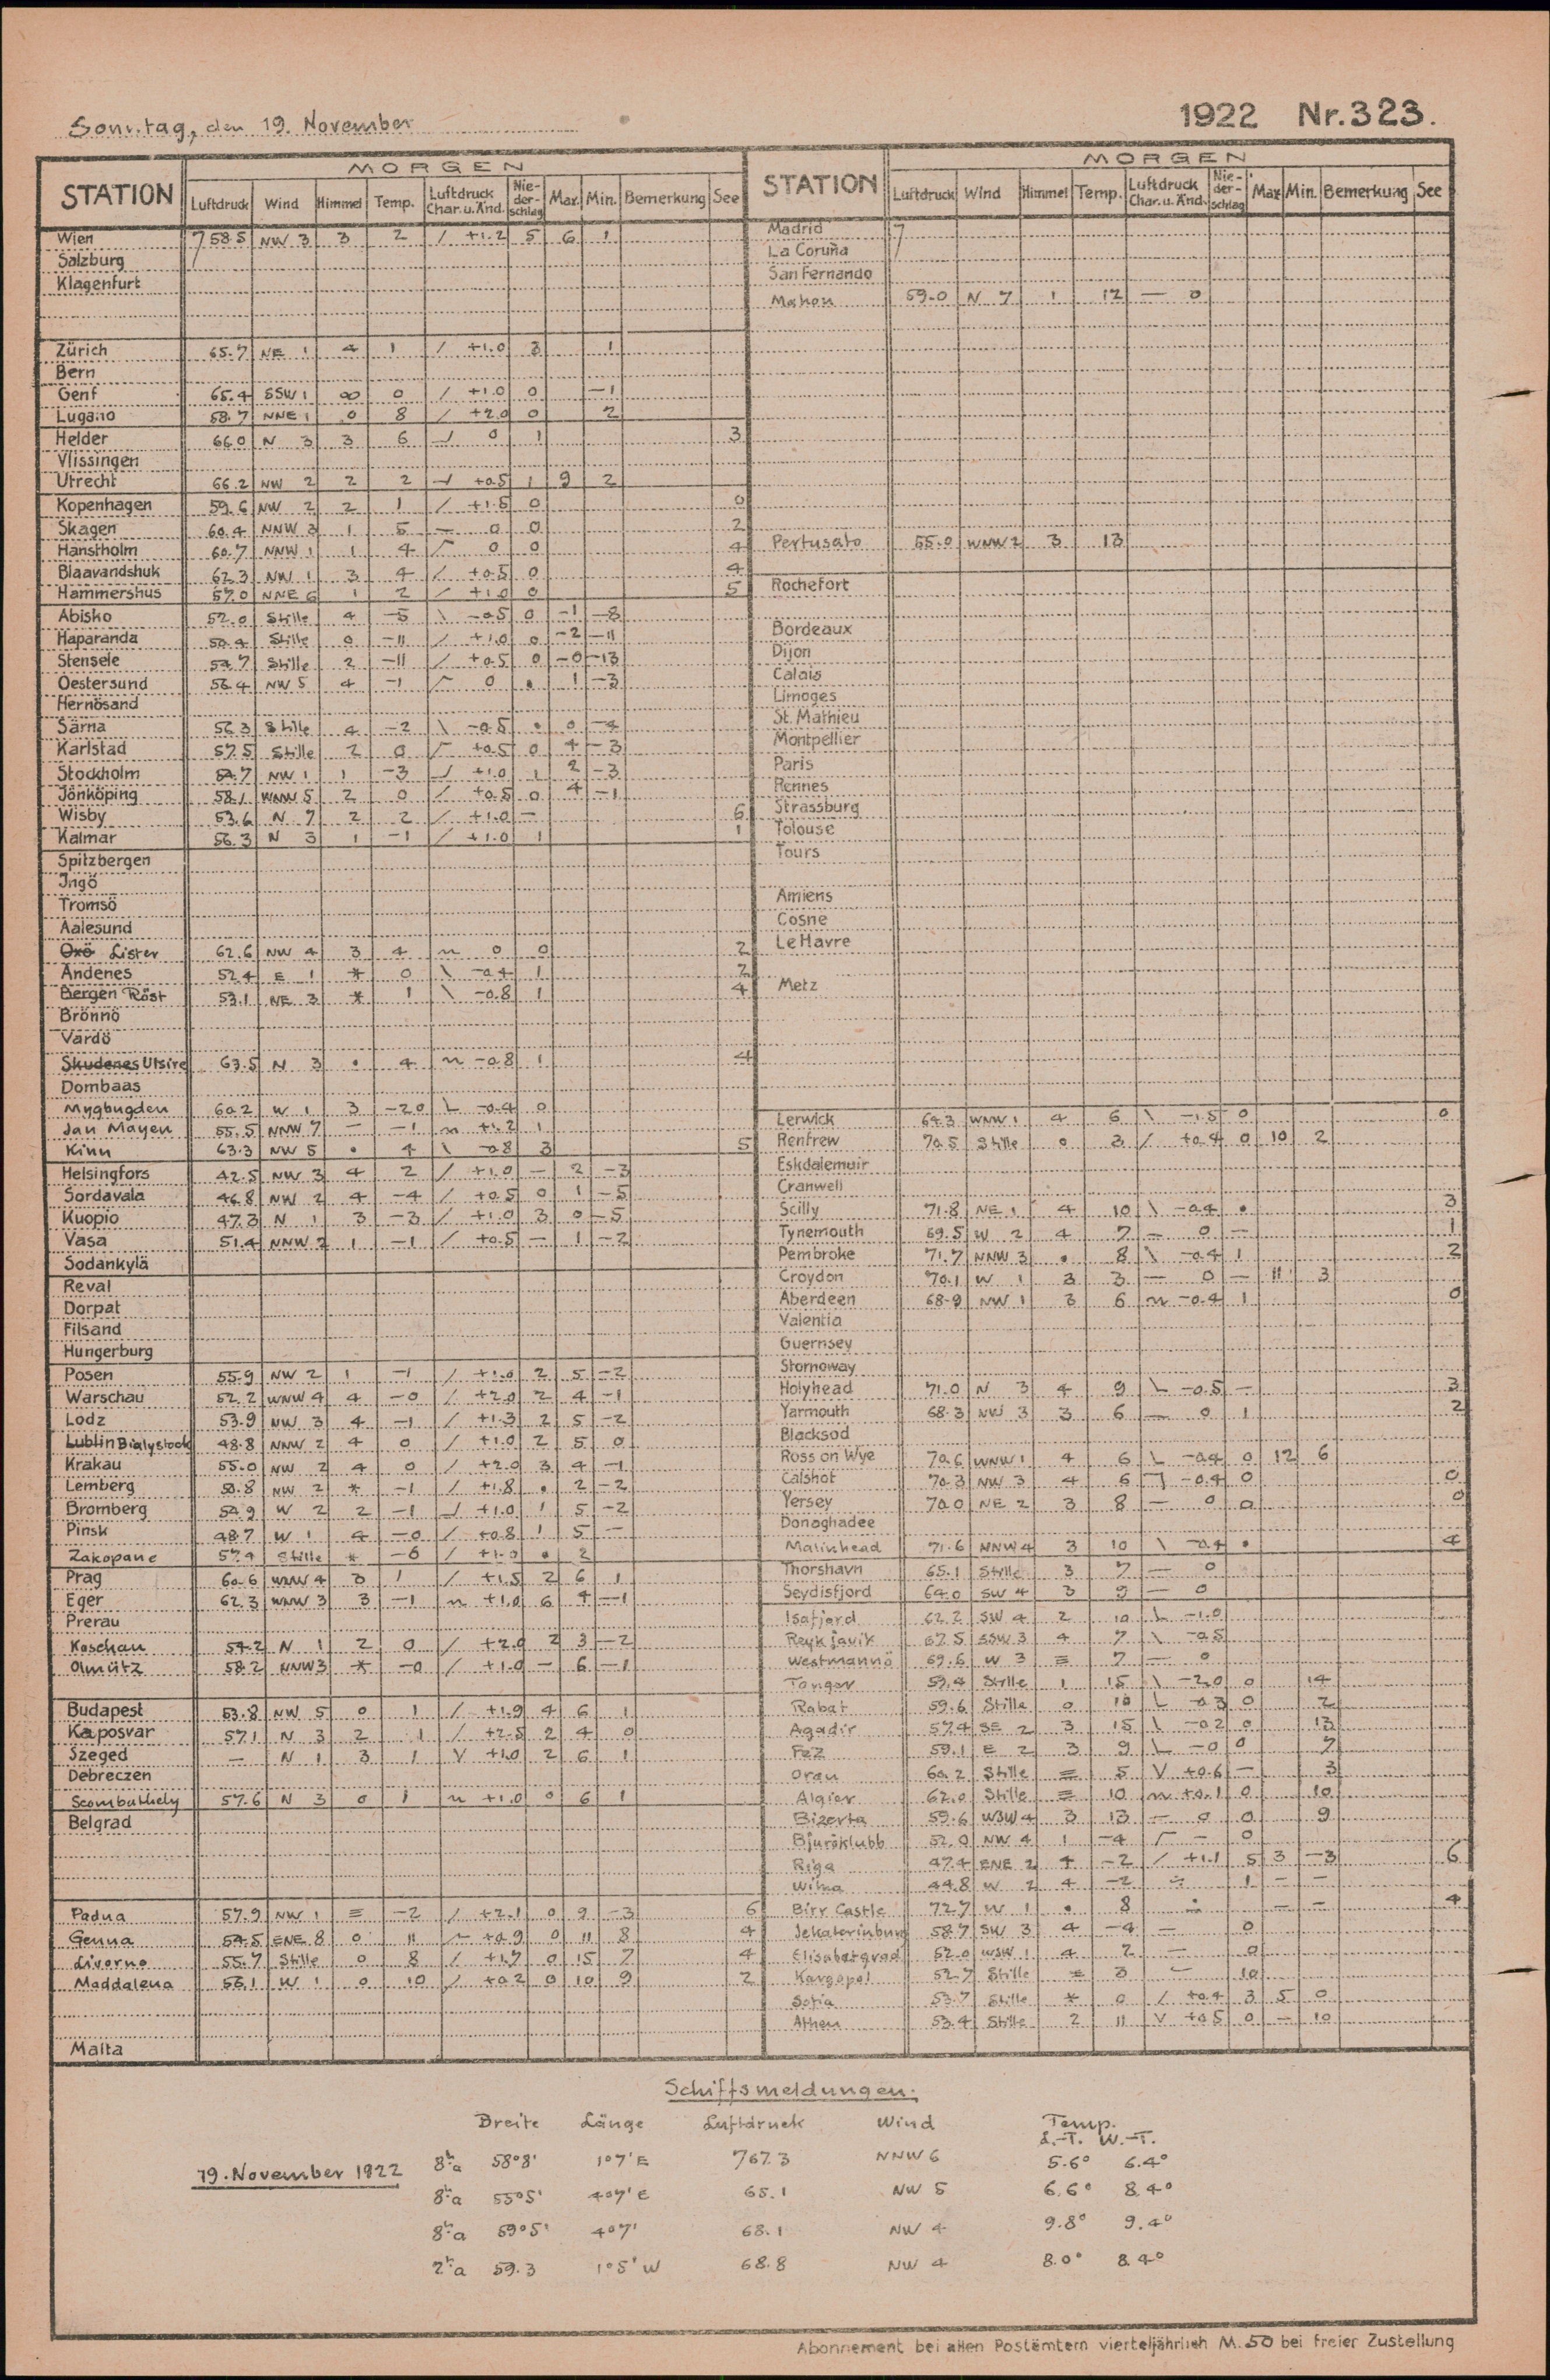 Sonntag, den 19. November
1922 Nr. 323.
MORGEN
STATION Luftdruck Wind Himmel Temp. Luftdruck Char. u. Änd. Nie-der-schlag Max. Min. Bemerkung See
Wien 758.5 NW 3 3 2 / +1.2 5 6 1
Salzburg
Klagenfurt
Zürich 65.7 NE 1 4 1 / +1.0 3 1
Bern
Genf 65.4 SSW 1 ∞ 0 / +1.0 0 −1
Lugano 58.7 NNE 1 0 8 / +2.0 0 2
Helder 66.0 N 3 3 6 0 1 3
Vlissingen
Utrecht 66.2 NW 2 2 2 +0.5 1 9 2
Kopenhagen 59.6 NW 2 2 1 / +1.5 0 0
Skagen 60.4 NNW 3 1 5 — 0 0 2
Hanstholm 60.7 NNW 1 1 4 0 0 4
Blaavandshuk 62.3 NW 1 3 4 / +0.5 0 4
Hammershus 57.0 NNE 6 1 2 / +1.0 0 5
Abisko 52.0 Stille 4 −5 \ −0.5 0 −1 −8
Haparanda 50.4 Stille 0 −11 / +1.0 0 −2 −11
Stensele 54.7 Stille 2 −11 / +0.5 0 −0 −13
Oestersund 56.4 NW 5 4 −1 0 • 1 −3
Hernösand
Särna 56.3 Stille 4 −2 \ −0.5 • 0 −4
Karlstad 57.5 Stille 2 0 +0.5 0 4 −3
Stockholm 54.7 NW 1 1 −3 +1.0 1 2 −3
Jönköping 58.1 WNW 5 2 0 / +0.5 0 4 −1
Wisby 53.6 N 7 2 2 / +1.0 — 6
Kalmar 56.3 N 3 1 −1 / +1.0 1 1
Spitzbergen
Jngö
Tromsö
Aalesund
Oxö Lister 62.6 NW 4 3 4 0 0 2
Andenes 52.4 E 1 * 0 \ −0.4 1 2
Bergen Röst 53.1 NE 3 * 1 \ −0.8 1 4
Brönnö
Vardö
Skudenes Utsire 63.5 N 3 • 4 −0.8 1 4
Dombaas
Mygbugden 60.2 W 1 3 −20 −0.4 0
Jan Mayen 55.5 NNW 7 — −1 +1.2 1
Kinn 63.3 NW 5 • 4 \ −0.8 3 5
Helsingfors 42.5 NW 3 4 2 / +1.0 — 2 −3
Sordavala 46.8 NW 2 4 −4 / +0.5 0 1 −5
Kuopio 47.3 N 1 3 −3 / +1.0 3 0 −5
Vasa 51.4 NNW 2 1 −1 / +0.5 — 1 −2
Sodankylä
Reval
Dorpat
Filsand
Hungerburg
Posen 55.9 NW 2 1 −1 / +1.0 2 5 −2
Warschau 52.2 WNW 4 4 −0 / +2.0 2 4 −1
Lodz 53.9 NW 3 4 −1 / +1.3 2 5 −2
Lublin Bialystock 48.8 NNW 2 4 0 / +1.0 2 5 0
Krakau 55.0 NW 2 4 0 / +2.0 3 4 −1
Lemberg 50.8 NW 2 * −1 / +1.8 • 2 −2
Bromberg 54.9 W 2 2 −1 +1.0 1 5 −2
Pinsk 48.7 W 1 4 −0 / +0.8 1 5 —
Zakopane 57.4 Stille * −6 / +1.0 • 2
Prag 60.6 WNW 4 3 1 / +1.5 2 6 1
Eger 62.3 WNW 3 3 −1 +1.0 6 4 −1
Prerau
Kaschau 54.2 N 1 2 0 / +2.0 2 3 −2
Olmütz 58.2 NNW 3 * −0 / +1.0 — 6 −1
Budapest 53.8 NW 5 0 1 / +1.9 4 6 1
Kaposvar 57.1 N 3 2 1 / +2.5 2 4 0
Szeged — N 1 3 1 V +1.0 2 6 1
Debreczen
Scombathely 57.6 N 3 0 1 +1.0 0 6 1
Belgrad
Padua 57.9 NW 1 ≡ −2 / +2.1 0 9 −3 6
Genua 54.5 ENE 8 0 11 +0.9 0 11 8 4
Livorno 55.7 Stille 0 8 / +1.7 0 15 7 4
Maddalena 56.1 W 1 0 10 / +0.2 0 10 9 2
Malta
MORGEN
STATION Luftdruck Wind Himmel Temp. Luftdruck Char. u. Änd. Nie-der-schlag Max Min. Bemerkung See
Madrid 7
La Coruña
San Fernando
Mahon 59.0 N 7 1 12 — 0
Pertusato 55.0 WNW 2 3 13
Rochefort
Bordeaux
Dijon
Calais
Limoges
St. Mathieu
Montpellier
Paris
Rennes
Strassburg
Tolouse
Tours
Amiens
Cosne
Le Havre
Metz
Lerwick 64.3 WNW 1 4 6 \ −1.5 0 0
Renfrew 70.5 Stille 0 3 / +0.4 0 10 2
Eskdalemuir
Cranwell
Scilly 71.8 NE 1 4 10 \ −0.4 • 3
Tynemouth 69.5 W 2 4 7 — 0 — 1
Pembroke 71.7 NNW 3 • 8 \ −0.4 1 2
Croydon 70.1 W 1 3 3 — 0 — 11 3
Aberdeen 68.9 NW 1 3 6 −0.4 1 0
Valentia
Guernsey
Stornoway
Holyhead 71.0 N 3 4 9 −0.5 — 3
Yarmouth 68.3 NW 3 3 6 — 0 1 2
Blacksod
Ross on Wye 70.6 WNW 1 4 6 −0.4 0 12 6
Calshot 70.3 NW 3 4 6 −0.4 0 0
Yersey 70.0 NE 2 3 8 — 0 0 0
Donaghadee
Malinhead 71.6 NNW 4 3 10 \ −0.4 • 4
Thorshavn 65.1 Stille 3 7 — 0
Seydisfjord 64.0 SW 4 3 9 — 0
Isafjord 62.2 SW 4 2 10 −1.0
Reykjavik 67.5 SSW 3 4 7 \ −0.5
Westmannö 69.6 W 3 ≡ 7 — 0
Tanger 59.4 Stille 1 15 \ −2.0 0 14
Rabat 59.6 Stille 0 10 −0.3 0 2
Agadir 57.4 SE 2 3 15 \ −0.2 0 13
Fez 59.1 E 2 3 9 −0 0 7
Oran 60.2 Stille ≡ 5 V +0.6 — 3
Algier 62.0 Stille ≡ 10 +0.1 0 10
Bizerta 59.6 WSW 4 3 13 — 0 0 9
Bjuröklubb 52.0 NW 4 1 −4 — 0
Riga 47.4 ENE 2 4 −2 / +1.1 5 3 −3 6
Wilna 44.8 W 2 4 −2 1 — —
Birr Castle 72.7 W 1 • 8 — — 4
Jekaterinburg 58.7 SW 3 4 −4 — 0
Elisabetgrad 52.0 WSW 1 4 2 — 0
Kargopol 52.7 Stille 3 — 10
Sofia 53.7 Stille * 0 / +0.4 3 5 0
Athen 53.4 Stille 2 11 V +0.5 0 — 10
Schiffsmeldungen.
Breite Länge Luftdruck Wind Temp.
L.-T. W.-T.
19. November 1922 8ʰ a 58°8' 1°7' E 767.3 NNW 6 5.6° 6.4°
8ʰ a 55°5' 4°7' E 65.1 NW 5 6.6° 8.4°
8ʰ a 59°5' 4°7' 68.1 NW 4 9.8° 9.4°
2ʰ a 59.3 1°5' W 68.8 NW 4 8.0° 8.4°
Abonnement bei allen Postämtern vierteljährlich M. 50 bei freier Zustellung